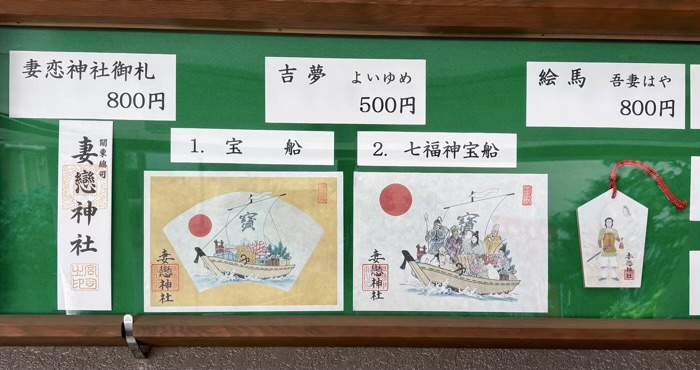 妻恋神社御札
800円
吉夢 よいゆめ
500円
絵馬 吾妻はや
800円
1. 宝 船
2. 七福神宝船
関東総司
妻戀神社
寳
妻戀神社
寳
妻戀神社